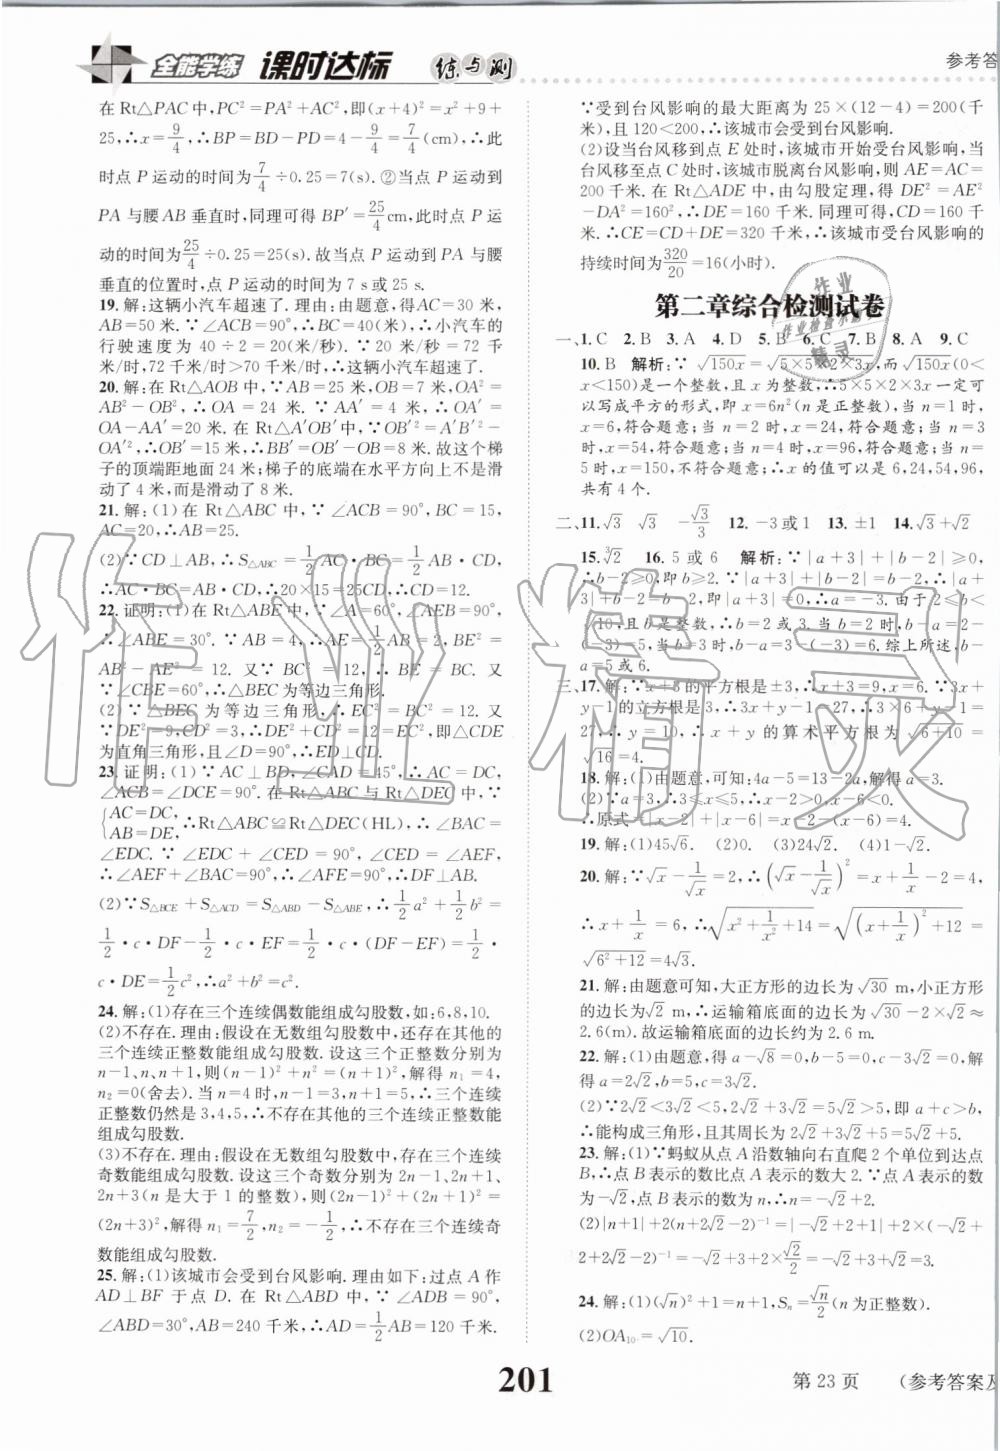 全能学练 课时达标 练与测
参考答案
在 Rt△PAC 中,PC²=PA²+AC²,即(x+4)²=x²+9+
25,∴x=9/4,∴BP=BD-PD=4-9/4=7/4(cm),∴此
时点 P 运动的时间为7/4÷0.25=7(s).②当点 P 运动到
PA 与腰 AB 垂直时,同理可得 BP′=25/4cm,此时点 P 运
动的时间为25/4÷0.25=25(s).故当点 P 运动到 PA 与腰
垂直的位置时,点 P 运动的时间为 7 s或 25 s.
19.解:这辆小汽车超速了.理由:由题意,得 AC=30 米,
AB=50 米.∵∠ACB=90°,∴BC=40(米),∴小汽车的
行驶速度为40÷2=20(米/秒).∵20米/秒=72千
米/时,72千米/时>70千米/时,∴这辆小汽车超速了.
20.解:在 Rt△AOB 中,∵AB=25 米,OB=7 米,OA²=
AB²-OB²,∴OA=24 米.∵AA′=4 米,∴OA′=
OA-AA′=20 米.在 Rt△A′OB′中,∵OB′²=A′B′²-
OA′²,∴OB′=15 米,∴BB′=OB′-OB=8 米.故这个梯
子的顶端距地面 24 米;梯子的底端在水平方向上不是滑
动了 4 米,而是滑动了 8 米.
21.解:(1)在 Rt△ABC 中,∵∠ACB=90°,BC=15,
AC=20,∴AB=25.
(2)∵CD⊥AB,∴S△ABC=1/2AC·BC=1/2AB·CD,
∴AC·BC=AB·CD,∴20×15=25CD,∴CD=12.
22.证明:(1)在 Rt△ABE 中,∵∠A=60°,∠AEB=90°,
∴∠ABE=30°.∵AB=4,∴AE=1/2AB=2,BE²=
AB²-AE²=12.又∵BC²=12,∴BE=BC.又
∵∠CBE=60°,∴△BEC 为等边三角形.
(2)∵△BEC 为等边三角形,∴EC²=BC²=12.又
∵DE²=9,CD²=3,∴DE²+CD²=12=EC²,即△CDE
为直角三角形,且∠D=90°.
23.证明:(1)∵AC⊥BD,∠CAD=45°,∴AC=DC,
∠ACB=∠DCE=90°.在 Rt△ABC 与 Rt△DEC 中,∵
{AC=DC, AB=DE, ∴Rt△ABC≌Rt△DEC(HL),∴∠BAC=
∠EDC.∵∠EDC+∠CED=90°,∠CED=∠AEF,
∴∠AEF+∠BAC=90°,∴∠AFE=90°,∴DF⊥AB.
(2)∵S△BCE+S△ACD=S△ABD-S△ABE,∴1/2a²+1/2b²=
1/2·c·DF-1/2·c·EF=1/2·c·(DF-EF)=1/2
c·DE=1/2c²,∴a²+b²=c².
24.解:(1)存在三个连续偶数能组成勾股数,如:6,8,10.
(2)不存在.理由:假设在无数组勾股数中,还存在其他的
三个连续正整数能组成勾股数.设这三个正整数分别为
n-1、n、n+1,则(n-1)²+n²=(n+1)²,解得 n₁=4,
n₂=0(舍去).当 n=4时,n-1=3,n+1=5,∴三个连续
正整数仍然是 3,4,5,∴不存在其他的三个连续正整数能
组成勾股数.
(3)不存在.理由:假设在无数组勾股数中,存在三个连续
奇数能组成勾股数.设这三个奇数分别为 2n-1、2n+1、
2n+3(n 是大于 1 的整数),则(2n-1)²+(2n+1)²=
(2n+3)²,解得 n₁=7/2,n₂=-1/2,∴不存在三个连续奇
数能组成勾股数.
25.解:(1)该城市会受到台风影响.理由如下:过点 A 作
AD⊥BF 于点 D.在 Rt△ABD 中,∵∠ADB=90°,
∠ABD=30°,AB=240 千米,∴AD=1/2AB=120 千米.
∵受到台风影响的最大距离为 25×(12-4)=200(千
米),且 120<200,∴该城市会受到台风影响.
(2)设当台风移到点 E 处时,该城市开始受台风影响,当
台风移到点 C 处时,该城市脱离台风影响,则有 AE=AC=
200 千米.在 Rt△ADE 中,由勾股定理,得 DE²=AE²
-DA²=160²,∴DE=160 千米.同理可得,CD=160 千
米.∴CE=CD+DE=320 千米,∴该城市受台风影响的
持续时间为320/20=16(小时).
第二章综合检测试卷
一、1.C 2.B 3.A 4.D 5.B 6.C 7.B 8.A 9.C
10.B 解析:∵√150x=√5×5×2×3x,而√150x(0<
x<150)是一个整数,且 x 为整数,∴5×5×2×3x 一定可
以写成平方的形式,即 x=6n²(n 是正整数),当 n=1 时,
x=6,符合题意;当 n=2 时,x=24,符合题意;当 n=3
时,x=54,符合题意;当 n=4时,x=96,符合题意;当 n=
5 时,x=150,不符合题意;∴x 的值可以是 6,24,54,96,
共有 4 个.
二、11.√3 √3 -√3/3 12.-3或1 13.±1 14.√3+√2
15.³√2 16.5 或 6 解析:∵|a+3|+|b-2|≥0,
∴b-2≥0,即 b≥2.∵|a+3|+|b-2|=b-2,∴|a+
3|+b-2=b-2,∴|a+3|=0,∴a=-3.由于 2≤b<
√10,且 b 是整数,∴b=2 或 3.当 b=2 时,b-a=2-
(-3)=5;当 b=3 时,b-a=3-(-3)=6.综上所述,b-
a=5 或 6.
三、17.解:∵x+3的平方根是±3,∴x+3=9,x=6.∵3x+
y-1的立方根是3,∴3x+y-1=27,∴3×6+y-1=
27,∴y=10,∴x+y 的算术平方根为√6+10=
√16=4.
18.解:(1)由题意,可知:4a-5=13-2a,解得 a=3.
(2)∵a=3,∴3≤x<6,∴x-2>0,x-6<0.
∴原式=|x-2|+|x-6|=4.
19.解:(1)45√6. (2)0. (3)24√2. (4)1-√2.
20.解:∵√x-1/√x=2,∴(√x-1/√x)²=x+1/x-2=4,
∴x+1/x=6,∴√(x²+1/x²+14)=√((x+1/x)²+12)=
√(6²+12)=4√3.
21.解:由题意可知,大正方形的边长为√30 m,小正方形
的边长为√2 m,∴运输箱底面的边长为√30-2×√2≈
2.6(m).故运输箱底面的边长约为 2.6 m.
22.解:(1)由题意,得 a-√8=0,b-5=0,c-3√2=0,解
得 a=2√2,b=5,c=3√2.
(2)∵2√2<3√2<5,2√2+3√2=5√2>5,即 a+c>b,
∴能构成三角形,且其周长为 2√2+3√2+5=5√2+5.
23.解:(1)∵蚂蚁从点 A 沿数轴向右直爬 2 个单位到达点
B,∴点 B 表示的数比点 A 表示的数大 2.∵点 A 表示
-√2,点 B 表示的数为 n,∴n=-√2+2.
(2)|n+1|+(n+2√2-2)⁻¹=|-√2+2+1|+(-√2+
2+2√2-2)⁻¹=-√2+3+2×√2/2=-√2+3+√2=3.
24.解:(1)(√n)²+1=n+1,Sₙ=√n/2(n 为正整数).
(2)OA₁₀=√10.
201
第 23 页
(参考答案及
作业精灵
作业
作业检查小
精灵